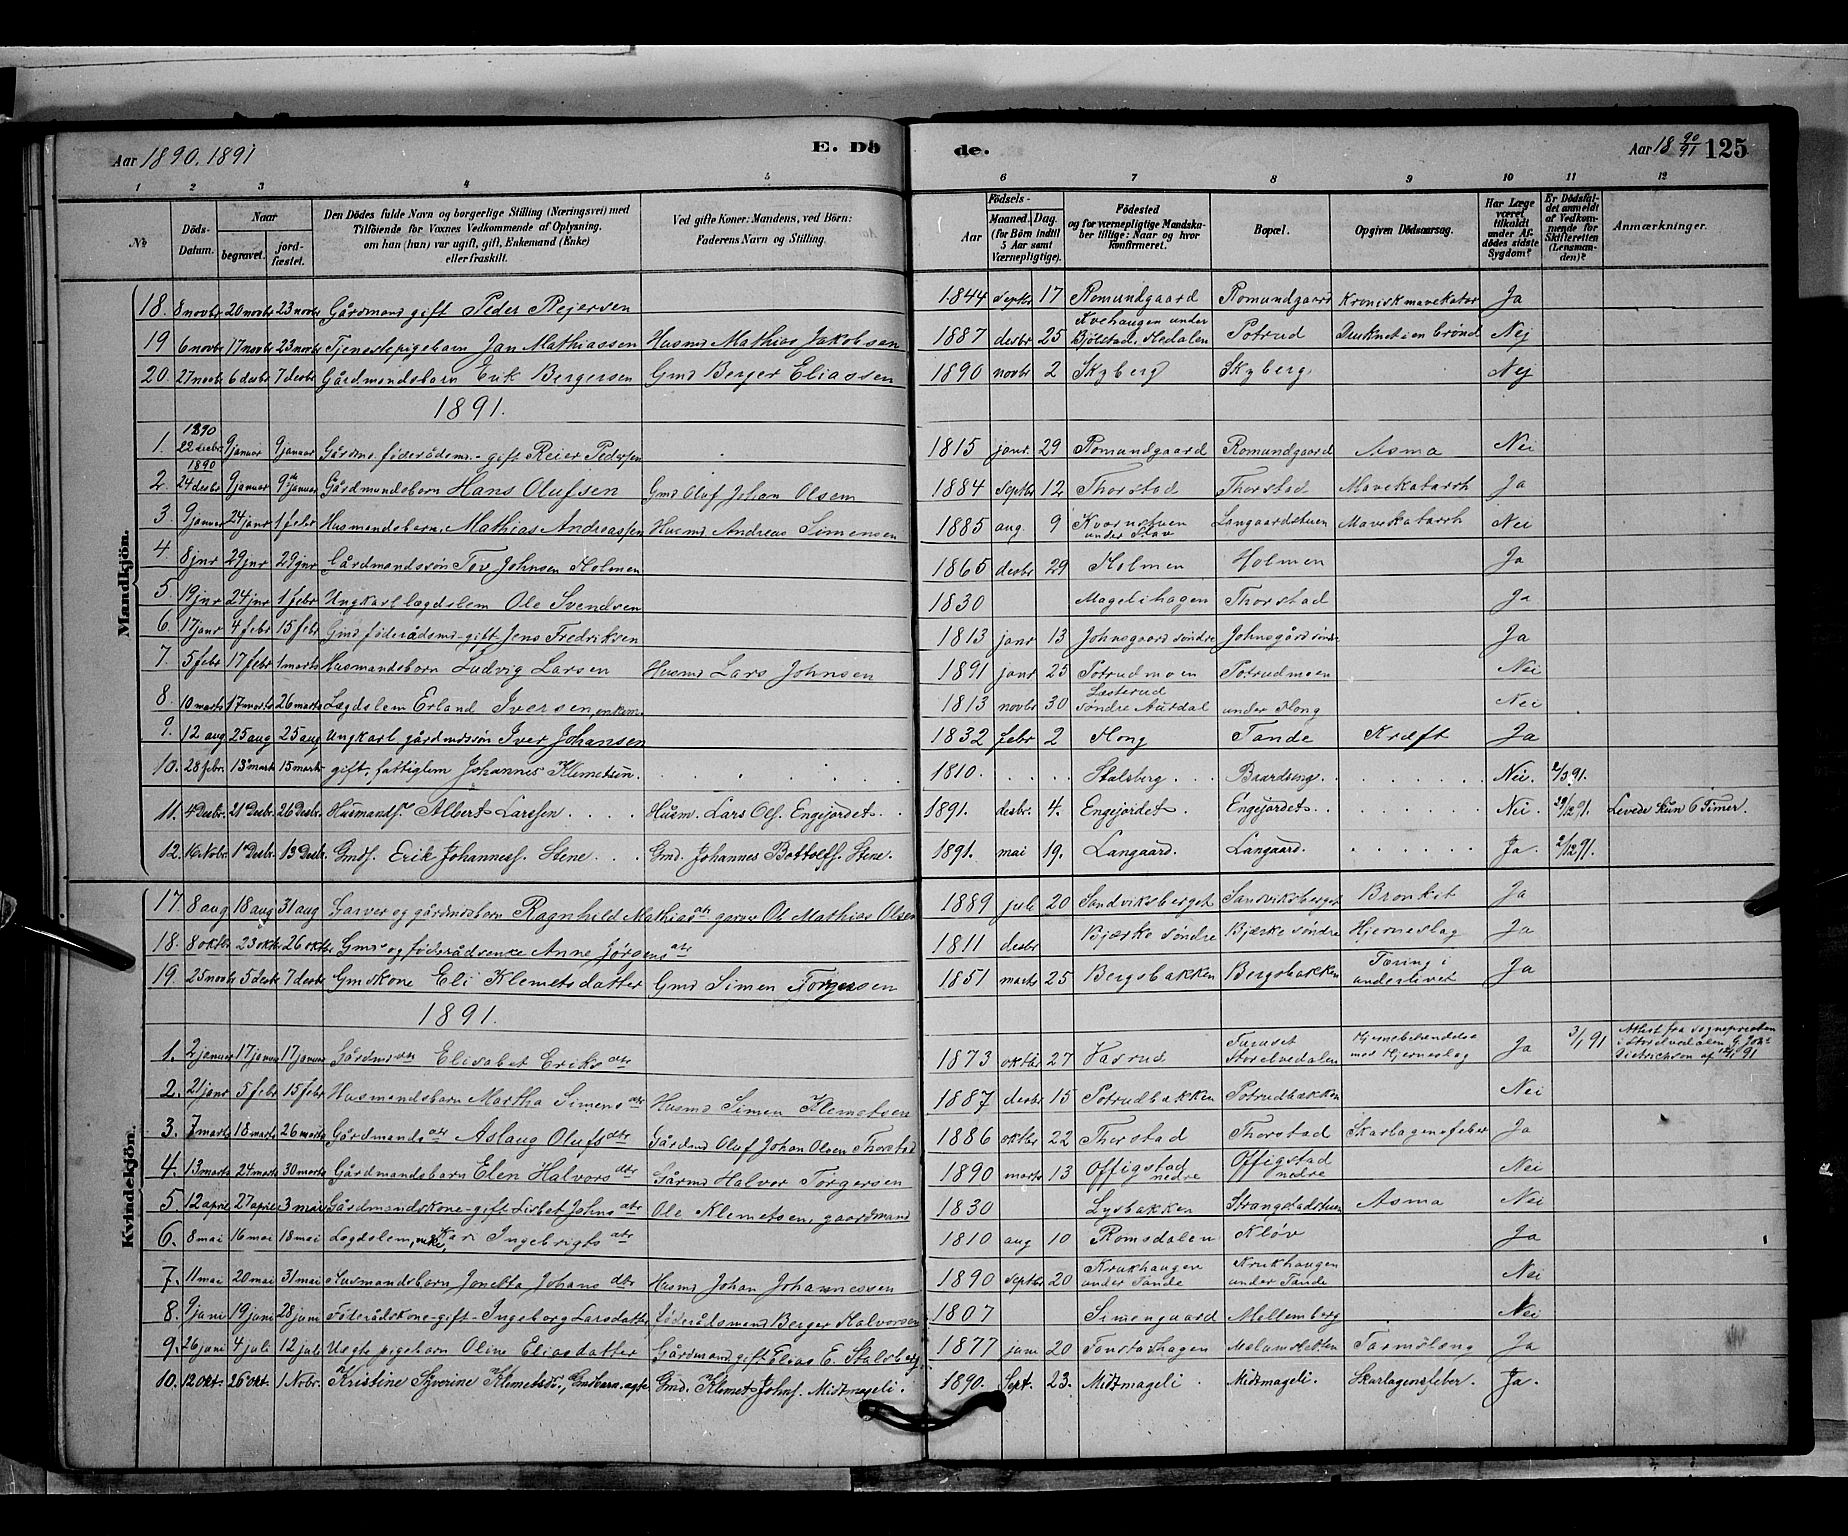 Aar 1890. 1891 E. Dö de. Aar 18 90/91 125
1 2 3 4 5 6 7 8 9 10 11 12
№ Döds-Datum. Naar begravet. jord-fæstet. Den Dödes fulde Navn og borgerlige Stilling (Næringsvei) med Tilföiende for Voxnes Vedkommende af Oplysning, om han (hun) var ugift, gift, Enkemand (Enke) eller fraskilt. Ved gifte Koner: Mandens, ved Börn: Faderens Navn og Stilling. Födsels- Aar Maaned. Dag. (for Börn indtil 5 Aar samt Værnepligtige). Födested og for værnepligtige Mandskaber tillige: Naar og hvor konfirmeret. Bopæl. Opgiven Dödsaarsag. Har Læge været tilkaldt under Afdödes sidste Sygdom? Er Dödsfaldet anmeldt af Vedkommende for Skifteretten (Lensmanden)? Anmærkninger.
Mandkjön.
18. 8 novbr 20 novbr 23 novbr Gårdmand gift Peder Rejersen 1844 septb 17 Romundgaard Romundgaard Kronisk mavekatar Ja
19 6 novbr 17 novbr 23 novbr Tjenestepigebarn Jan Mathiassen Husmd Mathias Jakobsen 1887 desbr 25 Kvehaugen under Bjölstad, Hedalen Potrud Druknet i en brönd Nej
20. 27 novbr 6 desbr 7 desbr Gårdmandsbarn Erik Bergersen Gmd Berger Eliassen 1890 novbr 2 Skyberg Skyberg Nej
1891.
1. 1890 22 desbr 9 januar 9 januar Gårdm. föderådsm.- gift Reier Pedersen 1815 janr 29 Romundgaard Romundgaard Asma Nei
2. 1890 24 desbr 9 januar 9de januar Gårdmandsbarn Hans Olufsen Gmd Oluf Johan Olsen 1884 septbr 12 Thorstad Thorstad Mavekatarrh Ja
3. 9 januar 24 janr 1 febr Husmandsbarn Mathias Andreassen Husmd Andreas Simensen 1885 aug 9 Kvornstuen under Stav Langaardstuen Mavekatarrh Nei
4. 8 jnr 29 jnr 29 jnr Gårdmandssön Tov Johnsen Holmen 1865 desbr 29 Holmen Holmen Ja
5. 19 jnr 24 jnr 1 febr Ungkarl lægdslem Ole Svendsen 1830 Magelihagen Thorstad Ja
6. 17 janr 4 febr 15 febr Gmd föderådsmd-gift Jens Fredriksen 1813 janr 13 Johnsgaard søndre Johnsgård søndre Ja
7. 5 febr 17 febr 1 marts Husmandsbarn Ludvig Larsen Husmd Lars Johnsen 1891 janr 25 Potrudmoen Potrudmoen Nei
8. 10 marts 17 marts 26 marts Lægdslem Erland Iversen, enkem. 1813 novbr 30 Søndre Aurdal under Hong Nei
9. 12 aug 25 aug 25 aug Ungkarl gårdmdssön Iver Johansen 1832 febr 2 Hong Tande Kræft Ja
10. 28 febr. 13 marts 15 marts gift, fattiglem Johannes Klemetsen. 1810. Stalsberg Baardseng. Nei. 2/3 91.
11. 4 Desbr. 21 Desbr. 26 Desbr. Husmandsf. Albert Larssen. Husm. Lars Ols. Engejordet. 1891. desbr. 4. Engejordet. Engejordet. Nei. 29/12 91. Levede kun 6 Timer.
12. 16 Novbr. 1 Desbr. 13 Desbr. Gmdf. Erik Johannesf. Stene. Gmd. Johannes Bottolfs. Stene. 1891. mai 19. Langaard. Langaard. Ja. 2/12 91.
Kvindekjön.
17. 8 aug 18 aug 31 aug Garver og gårdmdsbarn Ragnhild Mathias dtr garver Ol Mathias Olsen 1889 juli 20 Sandviksberget Sandviksberget Bronkit Ja
18. 8 oktbr 23 oktbr 26 oktbr Gmds og föderådsenke Anne Jörgens dtr 1811 desbr Bjærke söndre Bjærke söndre Hjerneslag Ja
19. 25 novbr 5 desbr 7 desbr Gmdkone Eli Klemetsdatter Gmd Simen Torgersen 1851 marts 25 Bergsbakken Bergsbakken Tæring i underlivet Ja
1891.
1. 2 januar 17 januar 17 januar Gårdmd dtr Elisabet Eriks dtr 1873 oktbr 27 Aasrud Storelvedalen Hjernebetændelse med Hjerneslag Ja 3/1 91 Attest fra sognepresten i Storelvedalen G. Joh. Dietrichson af 12/1 91
2. 21 janr 5 febr 15 febr Husmandsbarn Martha Simens dtr Husmd Simen Klemetsen 1887 desbr 15 Potrudbakken Potrudbakken Nei
3. 7 marts 18 marts 26 marts Gårdmands dtr Aslaug Olufs dtr Gårdmd Oluf Johan Olsen Thorstad 1886 oktbr 22 Thorstad Thorstad Skarlagensfeber Ja
4. 13 marts 24 marts 30 marts Gårdmandsbarn Elen Halvors dtr Gårmd Halvor Torgersen 1890 marts 13 Offigstad nedre Offigstad nedre Nei
5. 12 april 27 april 3 mai Gårdmandskone-gift Lisbet Johns dtr Ole Klemetsen, gaardmand 1830 Lysbakken Strangstadstuen Asma Nei
6. 8 mai 16 mai 18 mai Legdslem, enke, Kari Ingebrigts dtr 1810 aug 10 Romsdalen Kløv Ja
7. 11 mai 20 mai 31 mai Husmandsbarn Jonetta Johans dtr Husmd Johan Johannessen 1890 septbr 20 Krukhaugen under Tande Krukhaugen under Tande Nei
8. 9 juni 19 juni 28 juni Föderådskone-gift-Ingeborg Larsdatter Föderådsmand Berger Halvorsen 1807 Simengaard Mellemberg Nei
9. 26 juni 4 juli 12 juli Uegte pigebarn Oline Eliasdatter Gårdmand gift Elias E. Stalsberg 1877 juni 20 Tonstadhagen Melumsletten Tarmslong Ja
10. 12 Okt. 26 Okt. 1 Nobr. Kristine Syverine Klemetsdr., Gmdbarn, egte Gmd. Klemet Johs. Midtmageli. 1890. Sept. 23. Midtmageli. Midtmageli. Skarlagensfeber. Ja.